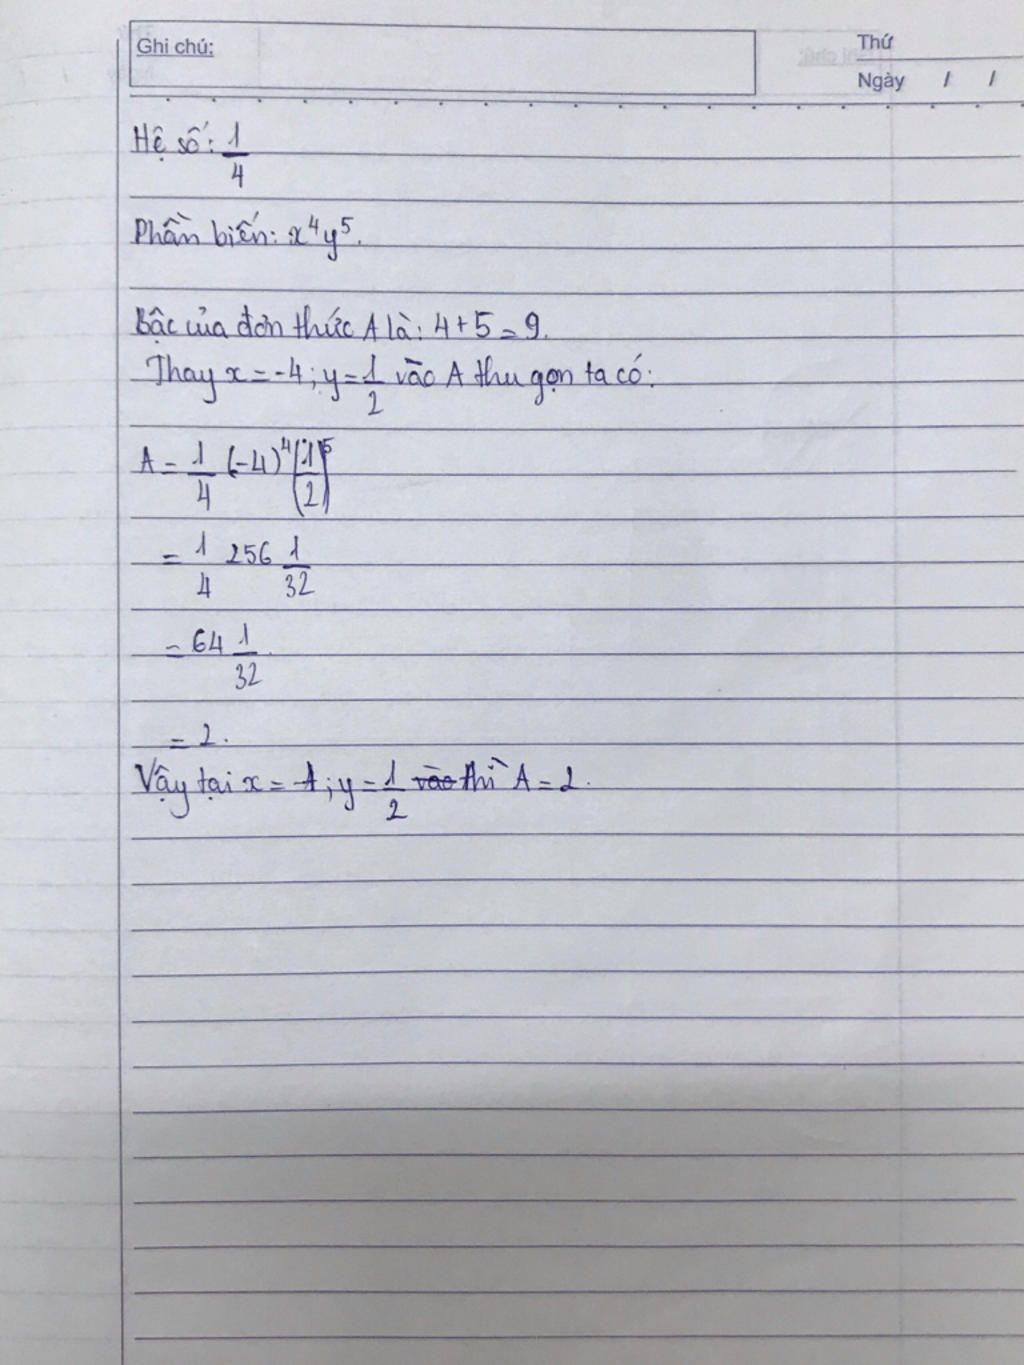 Ghi chú:
Thứ
Ngày / /
Hệ số: 1/4
Phần biến: x⁴y⁵.
Bậc của đơn thức A là: 4+5=9.
Thay x=-4; y=1/2 vào A thu gọn ta có:
A = 1/4 (-4)⁴(1/2)⁵
= 1/4 256 1/32
= 64 1/32
= 2.
Vậy tại x = -4; y = 1/2 thì A = 2.